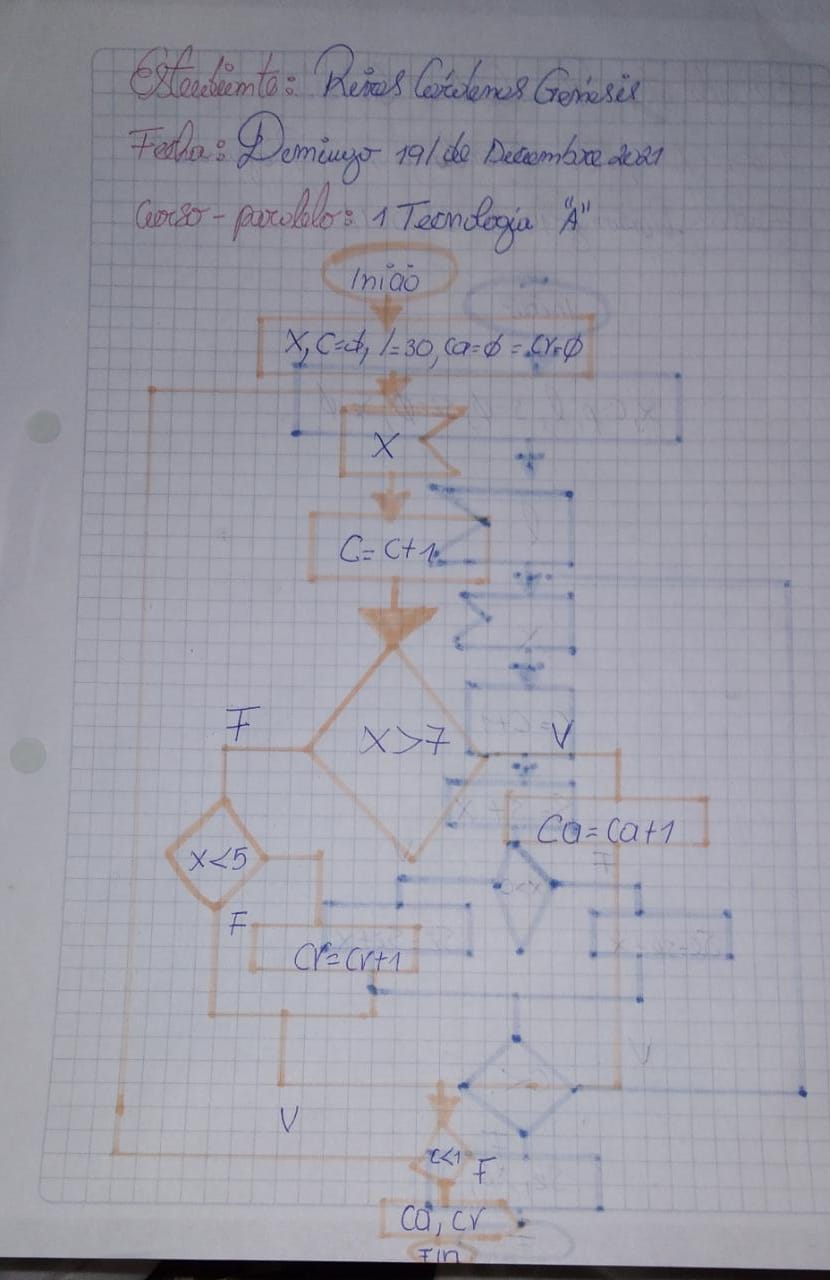 Estudiante: Reyes Cárdenas Genesis
Fecha: Domingo 19/ de Diciembre 2021
Curso - paralelo: 1 Tecnología "A"
Inicio
X, C=ϕ, l=30, Ca=ϕ = Cr=ϕ
X
C= C+1
X>7
F
V
Ca=Ca+1
X<5
F
Cr=Cr+1
V
c<1
F
Ca, Cr
Fin